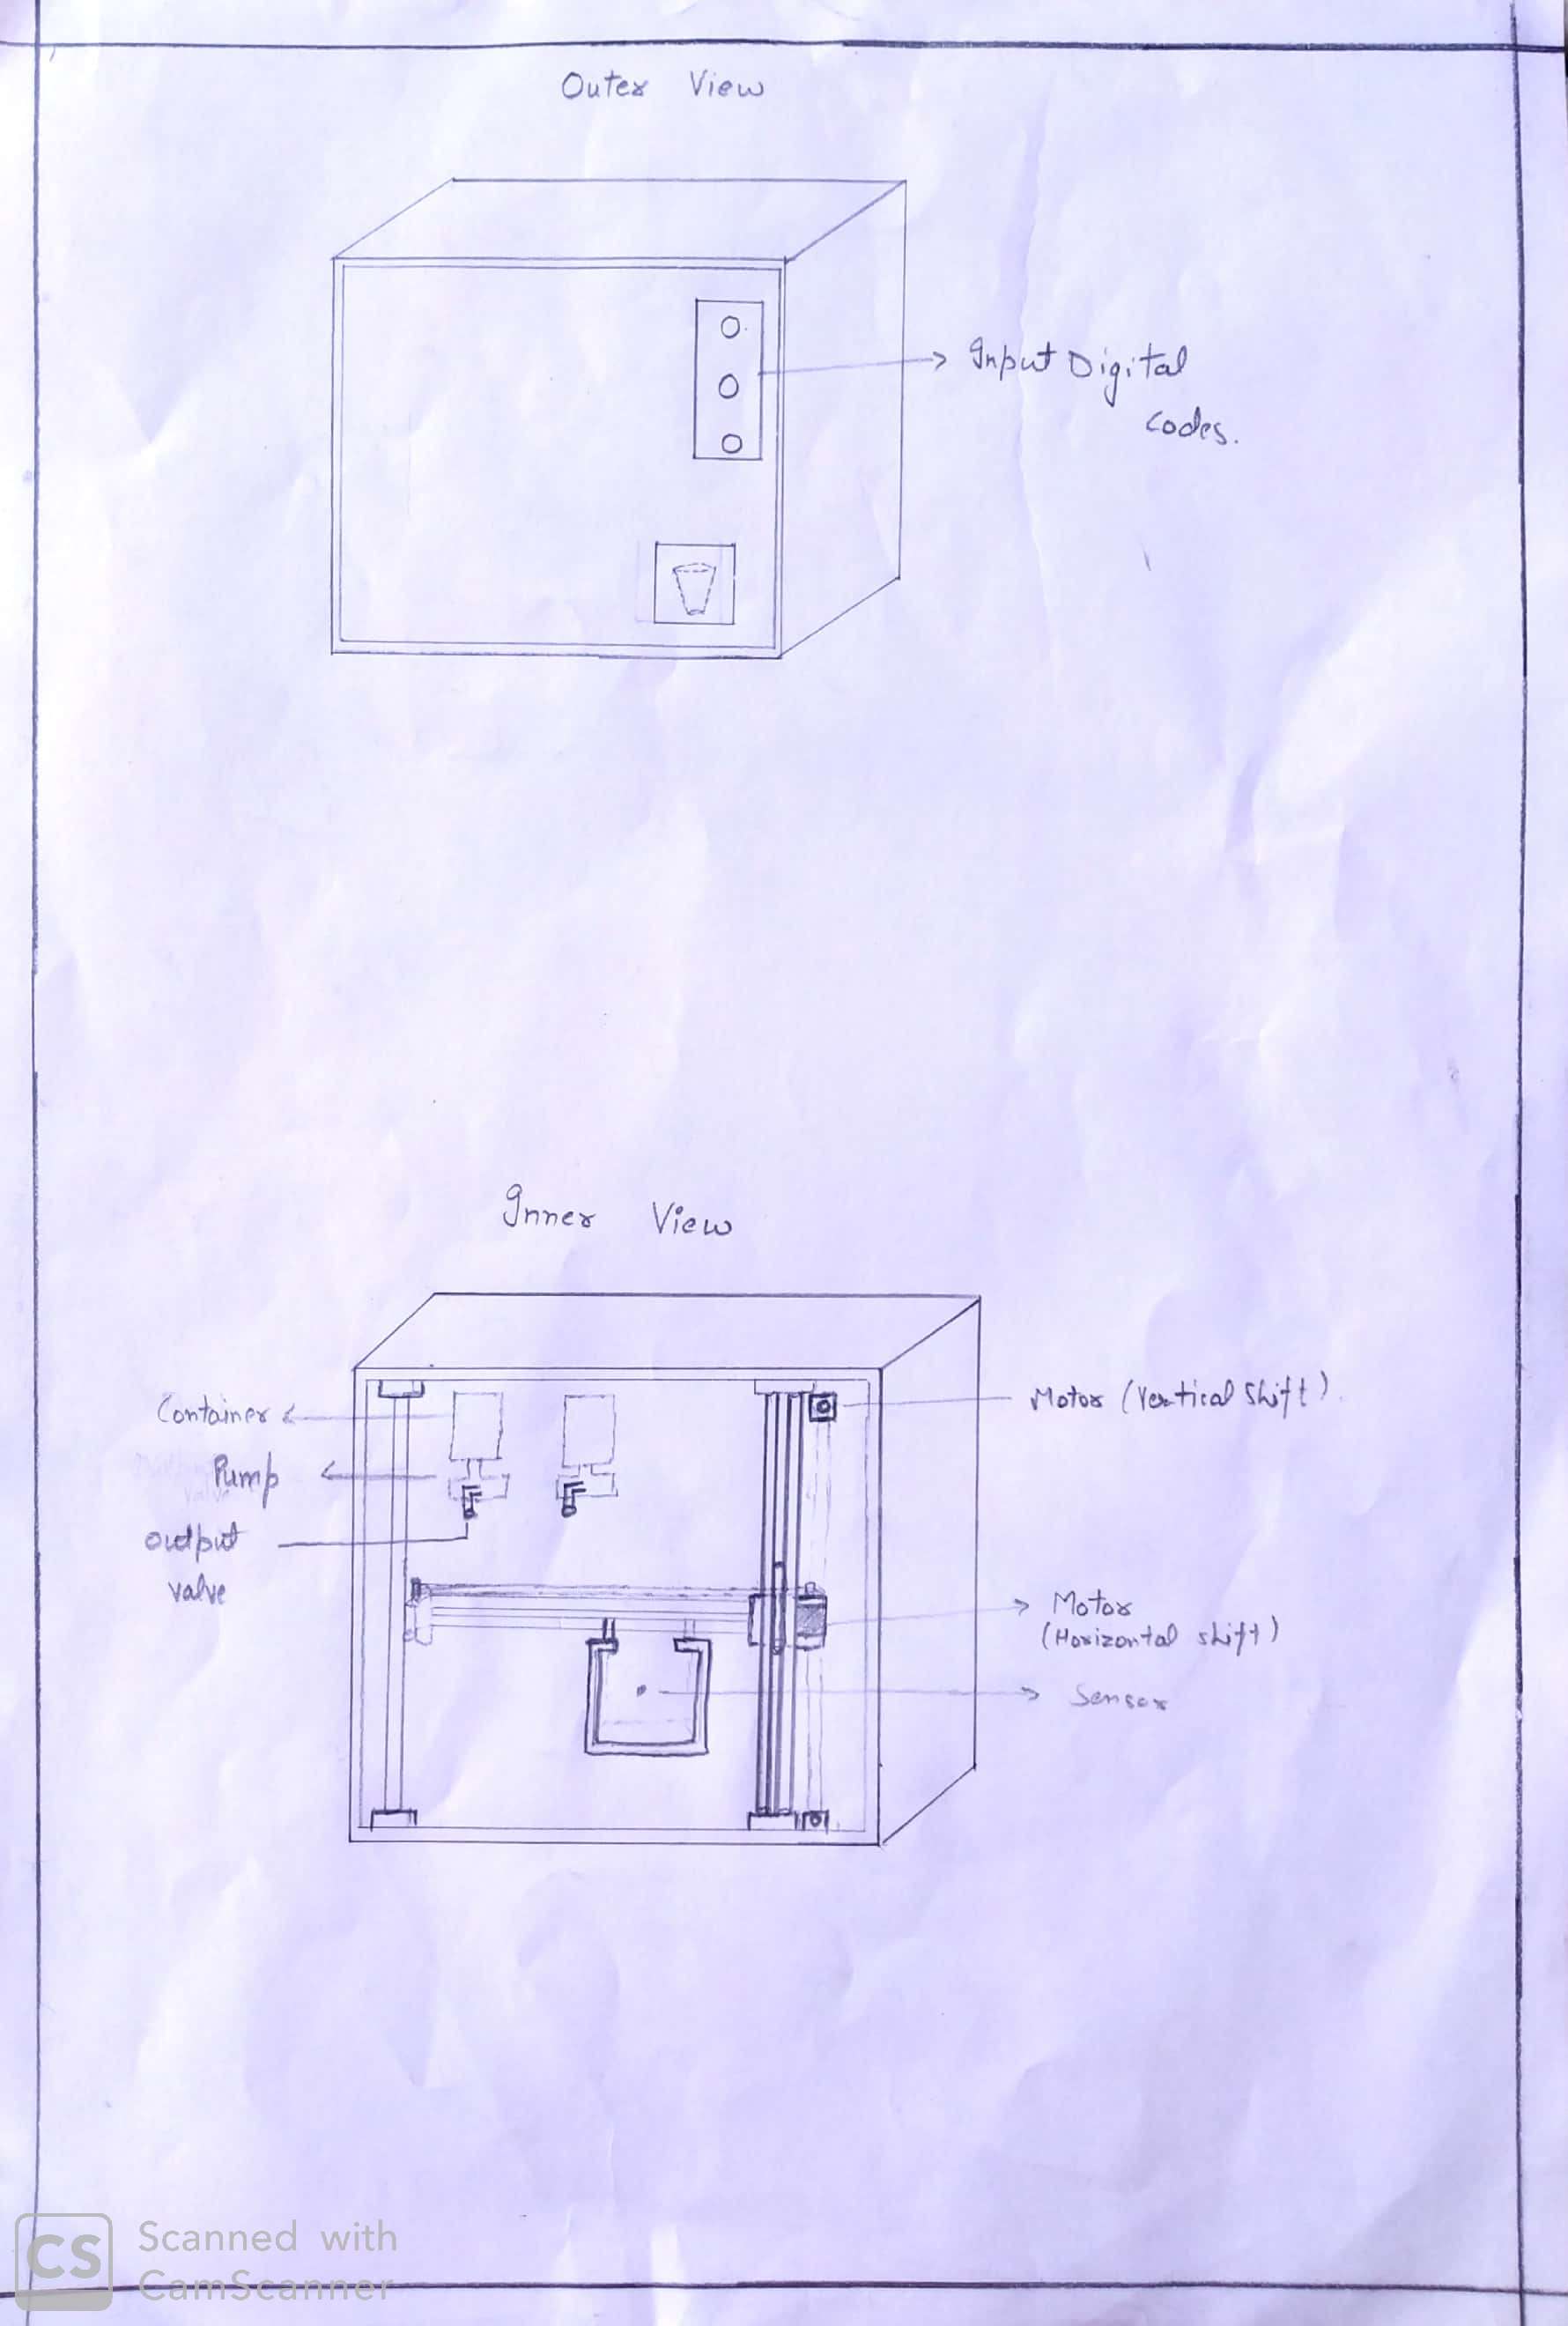 Outer View
Input Digital
codes.
Inner View
Container
Pump
output
valve
Motor (Vertical shift)
Motor
(Horizontal shift)
Sensor
CS
Scanned with
CamScanner